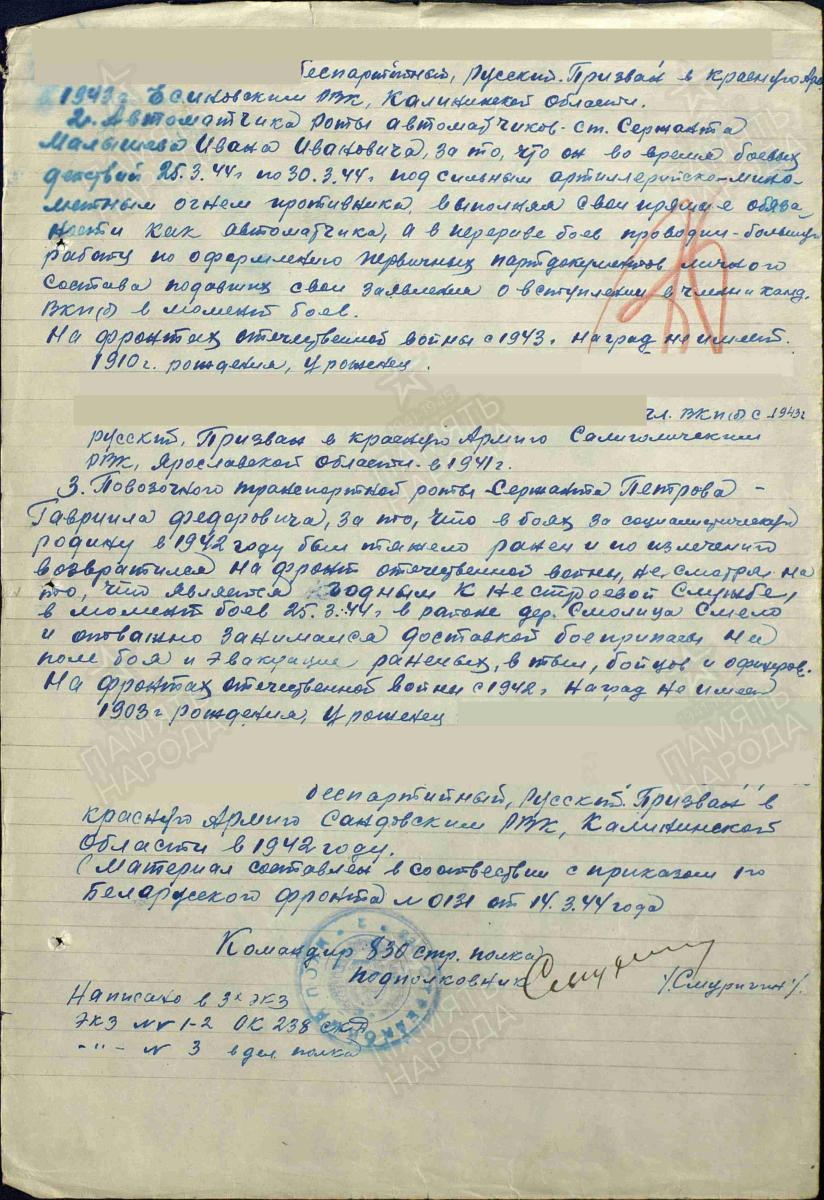 беспартийный, русский. Призван в красную Арм
1943г Есиновским РВК, Калининской области.
2. Автоматчика роты автоматчиков - ст. Сержанта
Малышева Ивана Ивановича, за то, что он во время боевых
действий 25.3.44г по 30.3.44г под сильным артиллерийско-мино-
метным огнем противника, выполняя свои прямые обяза-
ности как автоматчика, а в перерыве боев проводил большую
работу по оформлению первичных партдокументов личного
состава подавших свои заявления о вступлении в члены и канд.
ВКП(б) в момент боев.
На фронтах отечественной войны с 1943г наград не имеет.
1910г. рождения, уроженец.
чл. ВКП(б) с 1943г
русский, Призван в красную Армию Салигаличским
РВК, Ярославской области в 1941г.
3. Повозочного транспортной роты Сержанта Петрова -
Гавриила Федоровича, за то, что в боях за социалистическую
родину в 1942 году был тяжело ранен и по излечению
возвратился на фронт отечественной войны, не смотря на
то, что является годным к нестроевой службе,
в момент боев 25.3.44г в районе дер. Смолица смело
и отважно занимался доставкой боеприпасы на
поле боя и эвакуацие раненых, в тыл, бойцов и офицеров.
На фронтах отечественной войны с 1942г наград не имеет
1903г рождения, уроженец
беспартийный, русский. Призван в
красную Армию Сандовским РВК, Калининской
области в 1942 году.
(Материал составлен в соотвествии с приказом 1го
Беларусского фронта № 0131 от 14.3.44 года
Командир 830 стр. полка
подполковник /Смуригин/.
Написано в 3х экз
Экз №№ 1-2 ОК 238 скд
-"- № 3 в дел полка
ПАМЯТЬ
НАРОДА